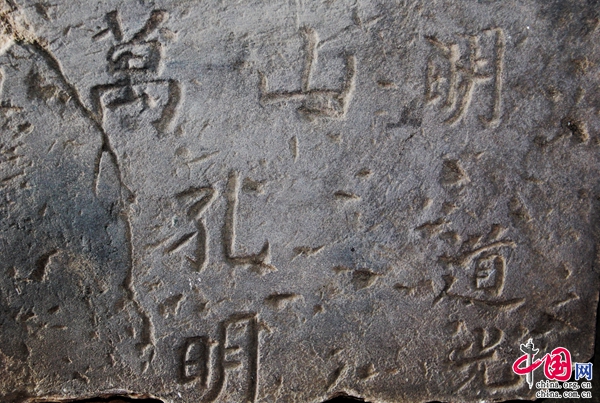 明道光
山
孔明
萬
中国网
china.org.cn
china.com.cn